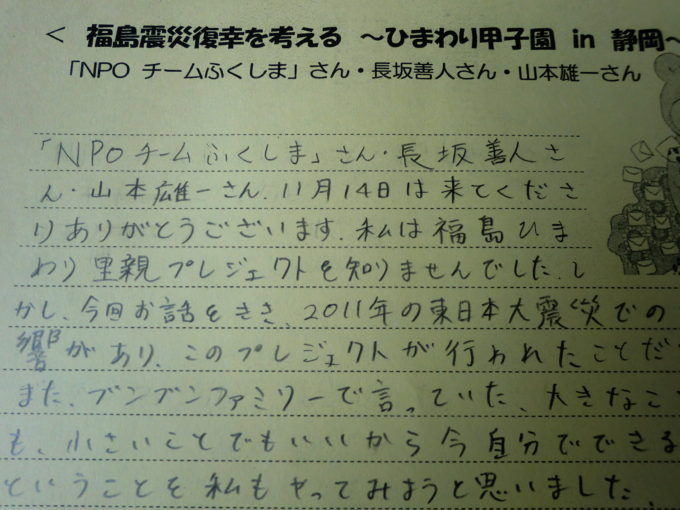 < 福島震災復幸を考える ～ひまわり甲子園 in 静岡～
「NPO チームふくしま」さん・長坂善人さん・山本雄一さん
「NPOチームふくしま」さん・長坂善人さ
ん・山本雄一さん、11月14日は来てくださ
りありがとうございます。私は福島ひま
わり里親プレジェクトを知りませんでした。し
かし、今回お話をきき、2011年の東日本大震災での
響があり、このプレジェクトが行われたことだ
また、ブンブンファミリーで言っていた、大きなこ
も、小さいことでもいいから今自分でできる
ということを私もやってみようと思いました。